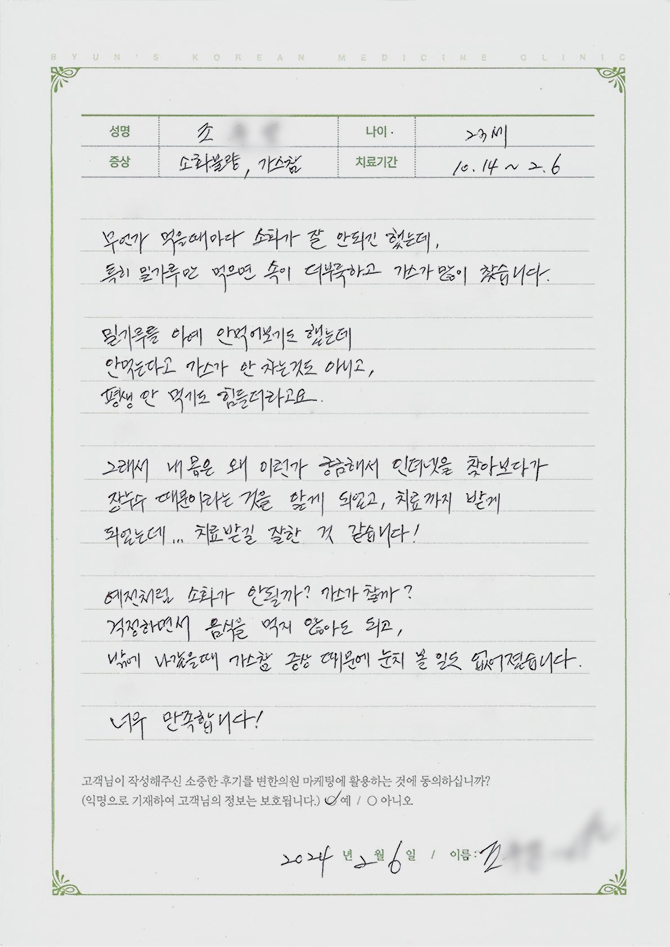 BYUN'S KOREAN MEDICINE CLINIC
성명 조 나이 · 23세
증상 소화불량, 가스참 치료기간 10.14 ~ 2.6
무언가 먹을때마다 소화가 잘 안되긴 했는데,
특히 밀가루만 먹으면 속이 더부룩하고 가스가 많이 찼습니다.
밀가루를 아예 안먹어보기도 했는데
안먹는다고 가스가 안 차는것도 아니고,
평생 안 먹기도 힘들더라고요.
그래서 내 몸은 왜 이런가 궁금해서 인터넷을 찾아보다가
장누수 때문이라는 것을 알게 되었고, 치료까지 받게
되었는데... 치료받길 잘한 것 같습니다!
예전처럼 소화가 안될까? 가스가 찰까?
걱정하면서 음식을 먹지 않아도 되고,
밖에 나갔을때 가스참 증상 때문에 눈치 볼 일도 없어졌습니다.
너무 만족합니다!
고객님이 작성해주신 소중한 후기를 변한의원 마케팅에 활용하는 것에 동의하십니까?
(익명으로 기재하여 고객님의 정보는 보호됩니다.) ○ 예 / ○ 아니오
2024 년 2 월 6 일 / 이름 : 조